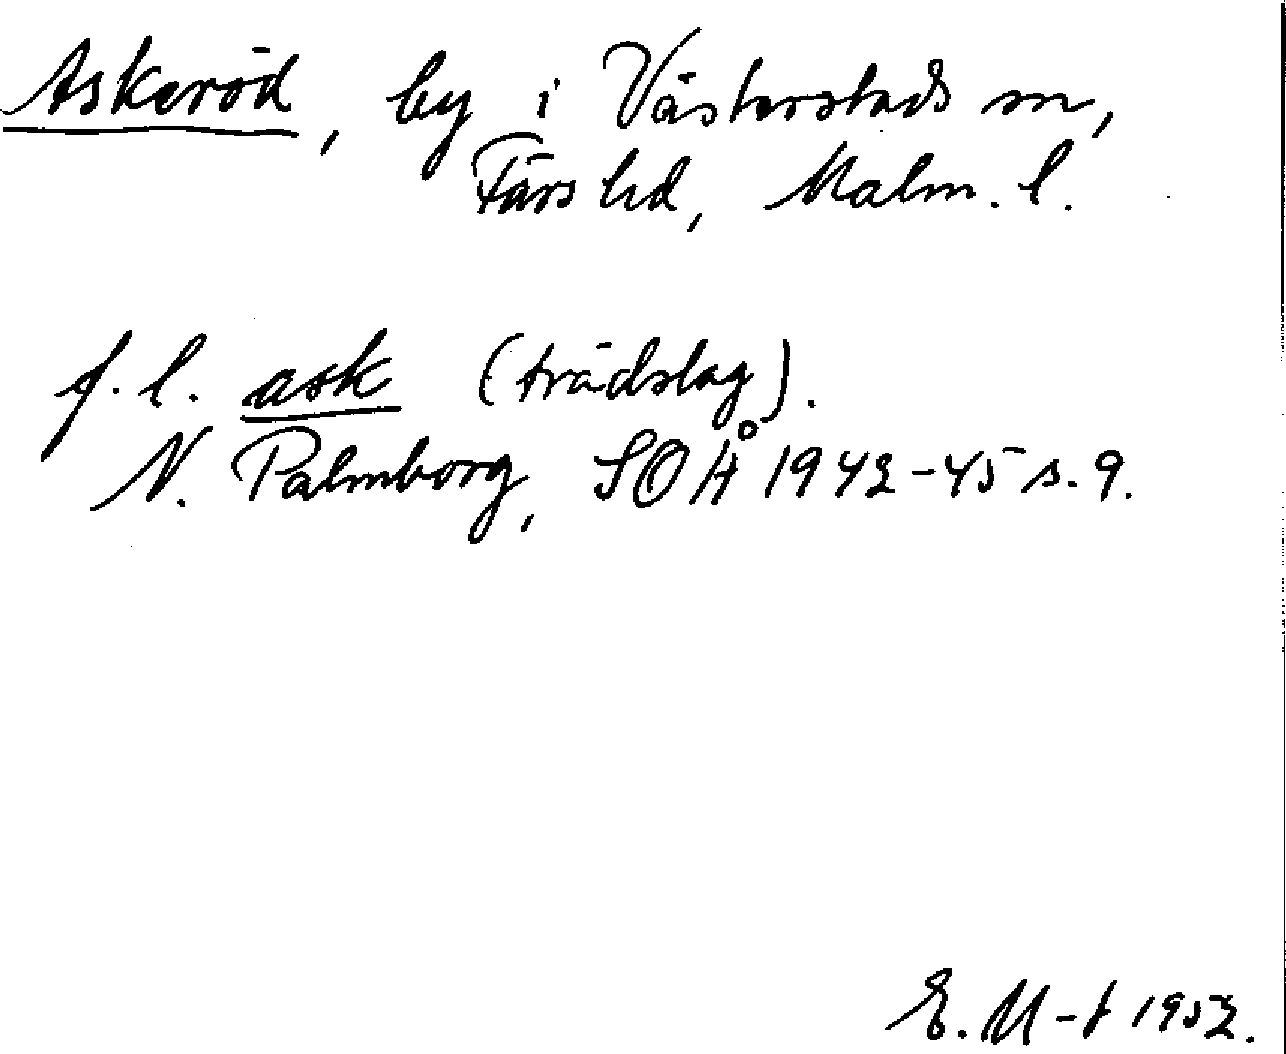 Askeröd, by i Västerstads sn,
Färs hd, Malm. l.
f. l. ask (trädslag).
N. Palmborg, SOÅ 1942-45 s. 9.
E. M-t 1952.